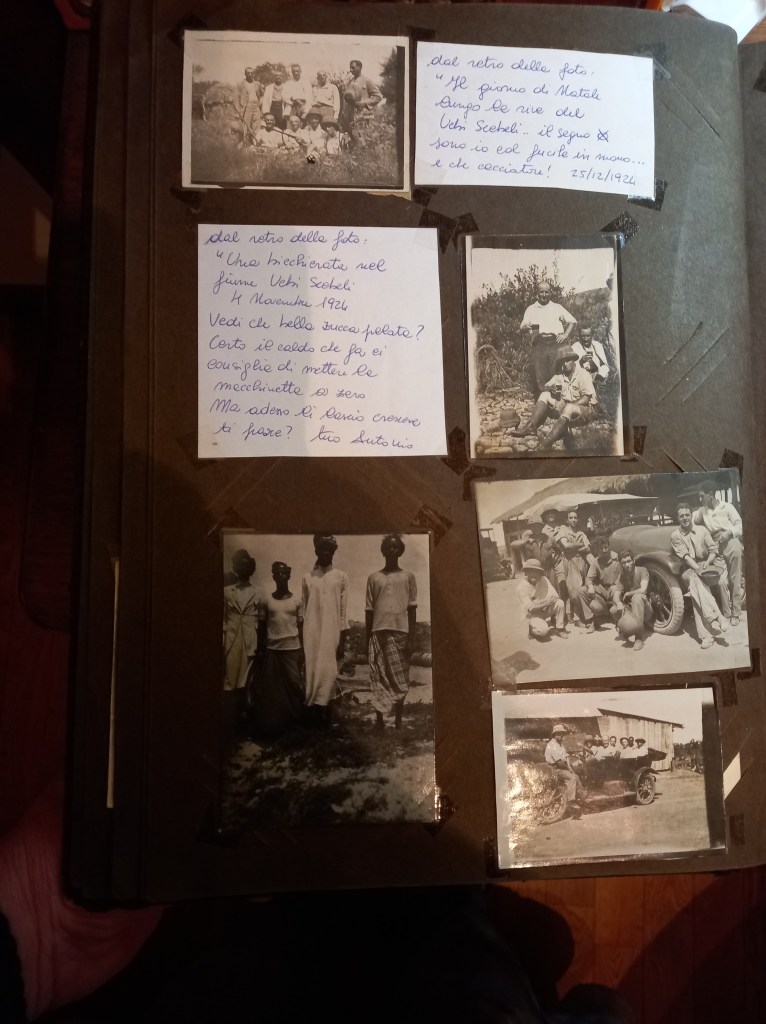 dal retro della foto:
"Il giorno di Natale
lungo le rive del
Uebi Scebeli.. il segno X
sono io col fucile in mano...
e che cacciatore! 25/12/1924
dal retro della foto:
"Una bicchierata nel
fiume Uebi Scebeli
4 Novembre 1924
Vedi che bella zucca pelata?
Certo il caldo che fa ci
consiglia di mettere la
macchinetta a zero
Ma adesso li lascio crescere
ti piace? tuo Antonio